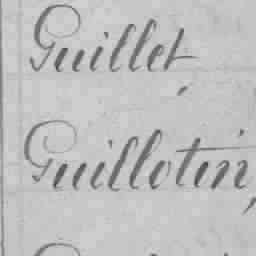 Guillet,
Guillotin,